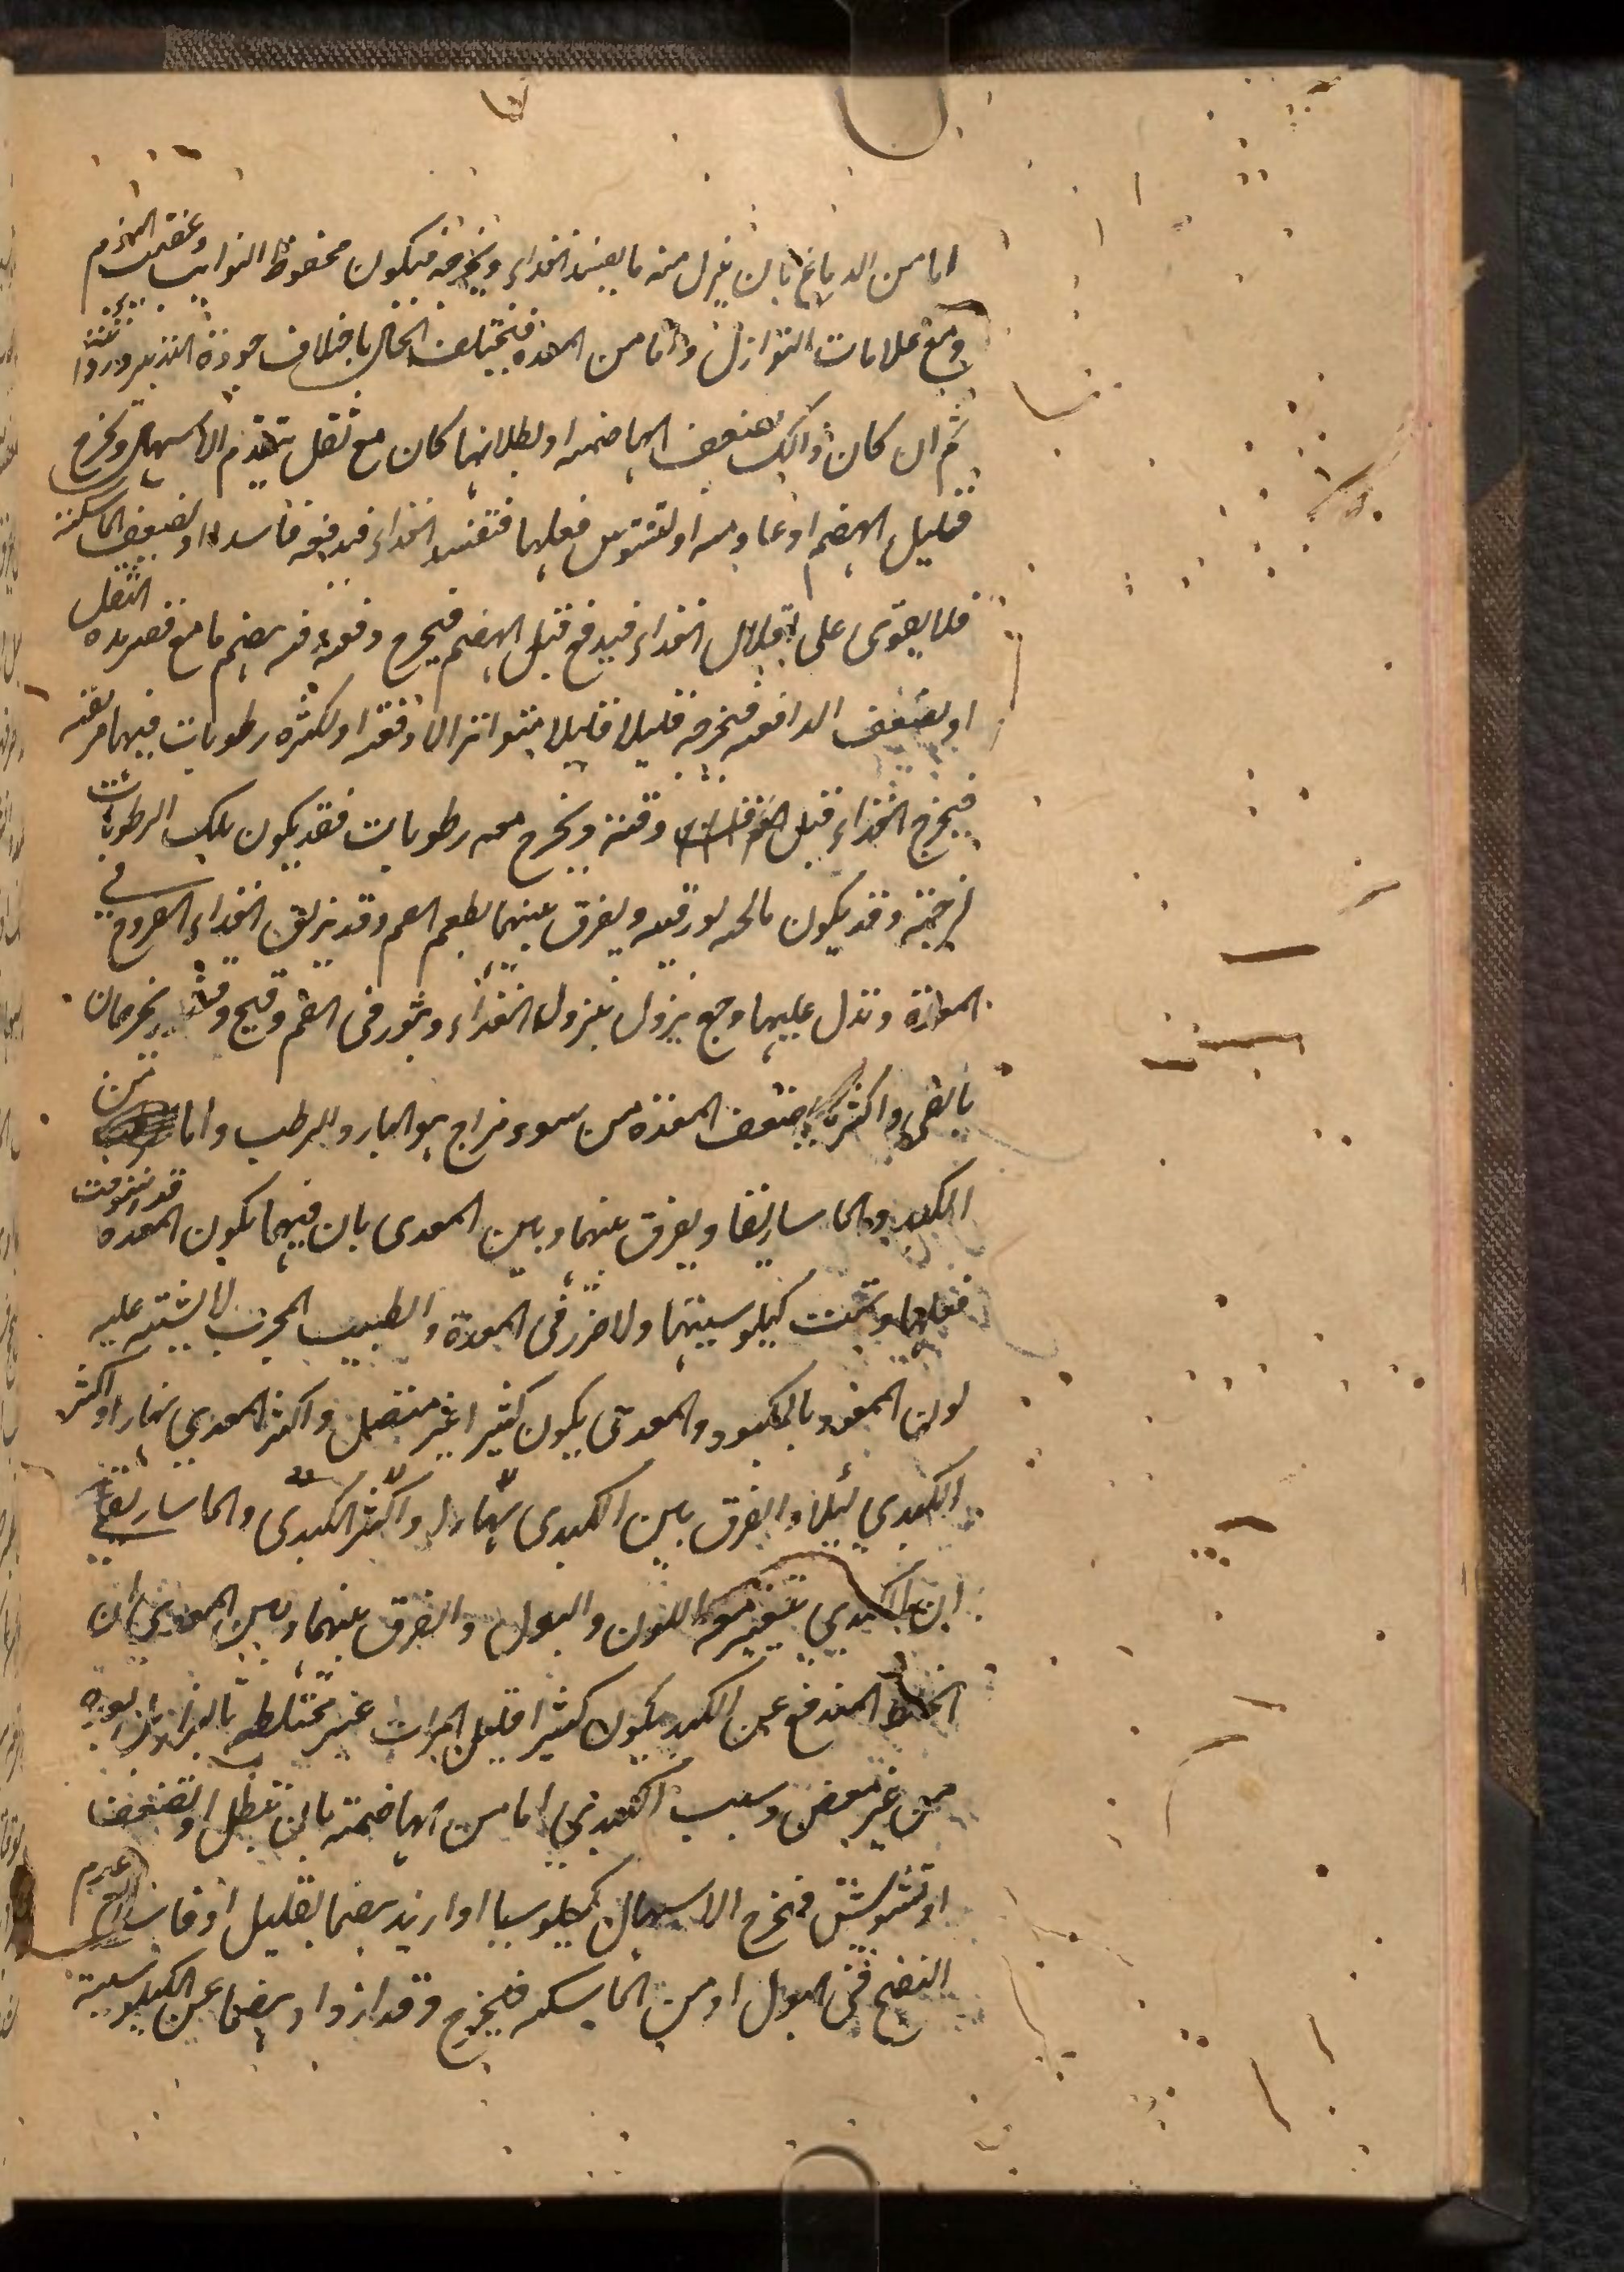 اما من الدماغ بان ينزل منه ما يفسد الغذاء ويخرجه فيكون محفوظ النوايب وعقيب النوم
ومع علامات النوازل واما من المعدة فيختلف الحال باختلاف جودة التدبير ورداءته
ثم ان كان ذالك لضعف الهاضمه او بطلانها كان مع ثقل يتقدم الاسهال ويخرج
قليل الهضم او عادمه او لتشوش فعلها فتفسد الغذاء فيدفعه فاسدا او لضعف الماسكة
فلا يقوى على اقلال الغذاء فيدفع قبل الهضم فيخرج دفعة فه بهضم ما مع قصر مدة الثقل
او لضعف الدافعه فيخرجه قليلا قليلا متواترا لا دفعة او لكثره رطوبات فيها مزلقه
فيخرج الغذاء قبل وقته ويخرج معه رطوبات فقد يكون تلك الرطوبات
لزجة وقد يكون مالحه بورقيه ويفرق بينهما بطعم الفم وقد يزلق الغذاء القروح في
المعدة وتدل عليها وجع ينزول بنزول الغذاء وبثور فى الفم وقيح وقشر يخرجان
بالقى واكثر ضعف المعدة من سوء مزاج هو البارد الرطب واما من
الكبد والماساريقا ويفرق بينهما وبين المعدى بان فيهما يكون المعده قد استوفت
فعلها وتمت كيلوسيتها ولا ضرر فى المعدة والطبيب المجرب لا يشتبه عليه
لون الممعود بالمكبود والمعدى يكون كثيرا غير متصل واكثر المعدي نهارا واكثر
الكبدي ليلا والفرق بين الكبدى نهارا واكثر الكبدى والماساريقى
ان الكبدي يتغير معه اللون والبول والفرق بينهما وبين المعدي ان
الخلط المندفع عن الكبد يكون كثيرا قليل المرات غير مختلط بالبراز
من غير مغص وسبب الكبدي اما من الهاضمته بان تبطل او تضعف
او تتشوش فيخرج الاسهال كيلوسيا او ازيد هضما بقليل اوفاسدا مع عدم
النضج فى البول او من الماسكه فيخرج وقد ازداد هضما عن الكيلوسية